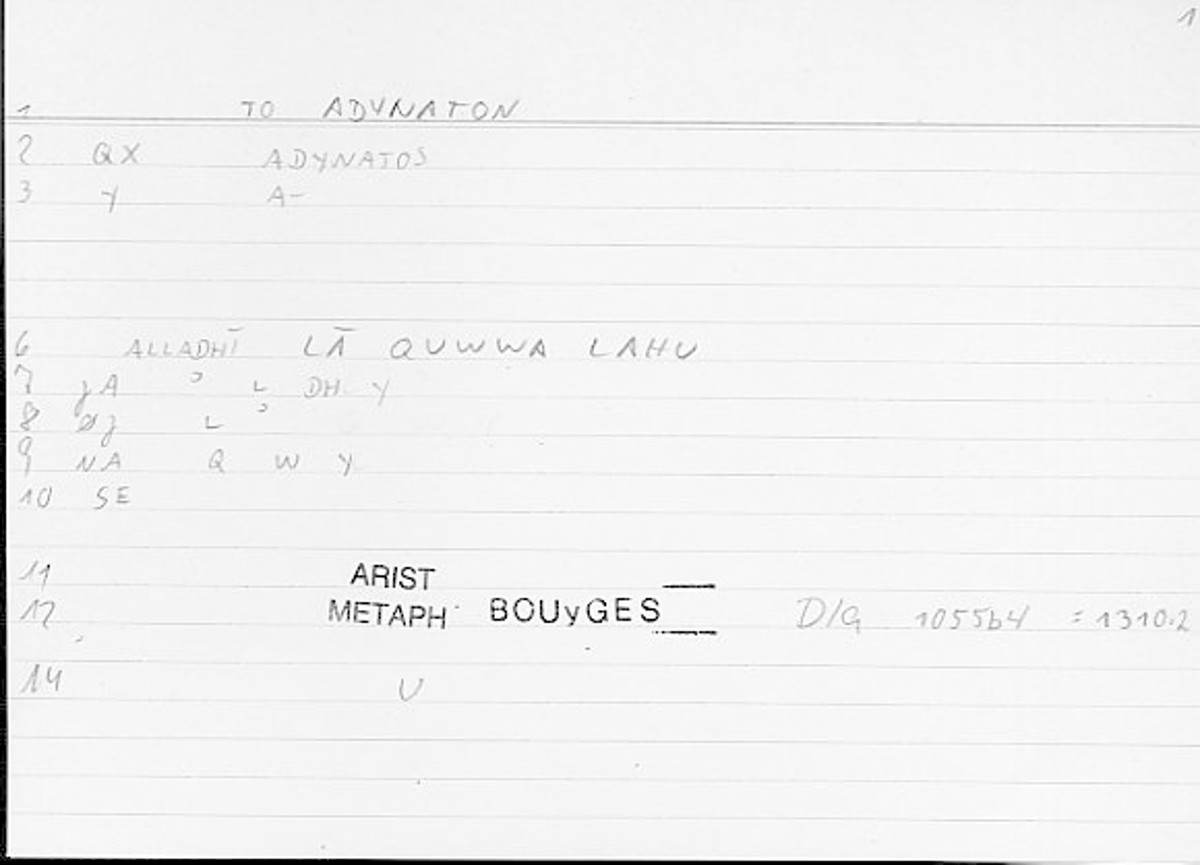 1
1 TO ADYNATON
2 QX ADYNATOS
3 Y A-
6 ALLADHĪ LĀ QUWWA LAHU
7 JA ʾ L DH Y
8 ØJ L ʾ
9 NA Q W Y
10 SE
11 ARIST
12 METAPH BOUyGES D/G 1055b4 = 1310.2
14 U